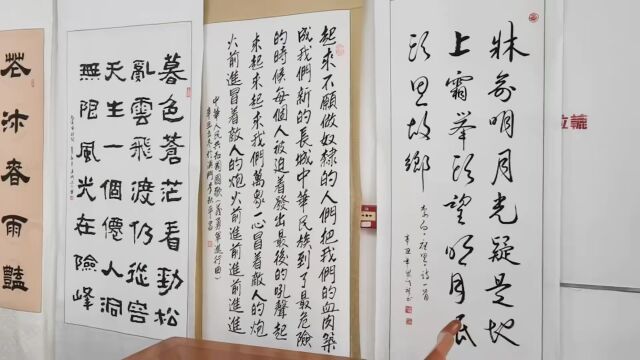 牀前明月光疑是地
上霜举头望明月低
头思故鄉
李白
诗一首
起來不願做奴隸的人們把我們的血肉築
成我們新的長城中華民族到了最危險
的時候每個人被迫着發出最後的吼聲起
來起來起來我們萬衆一心冒着敵人的炮
火前進冒着敵人的炮火前進前進前進進
中華人民共和國國歌（義勇軍進行曲）
暮色蒼茫看勁松
亂雲飛渡仍從容
天生一個僊人洞
無限風光在險峰
花沐春雨豔